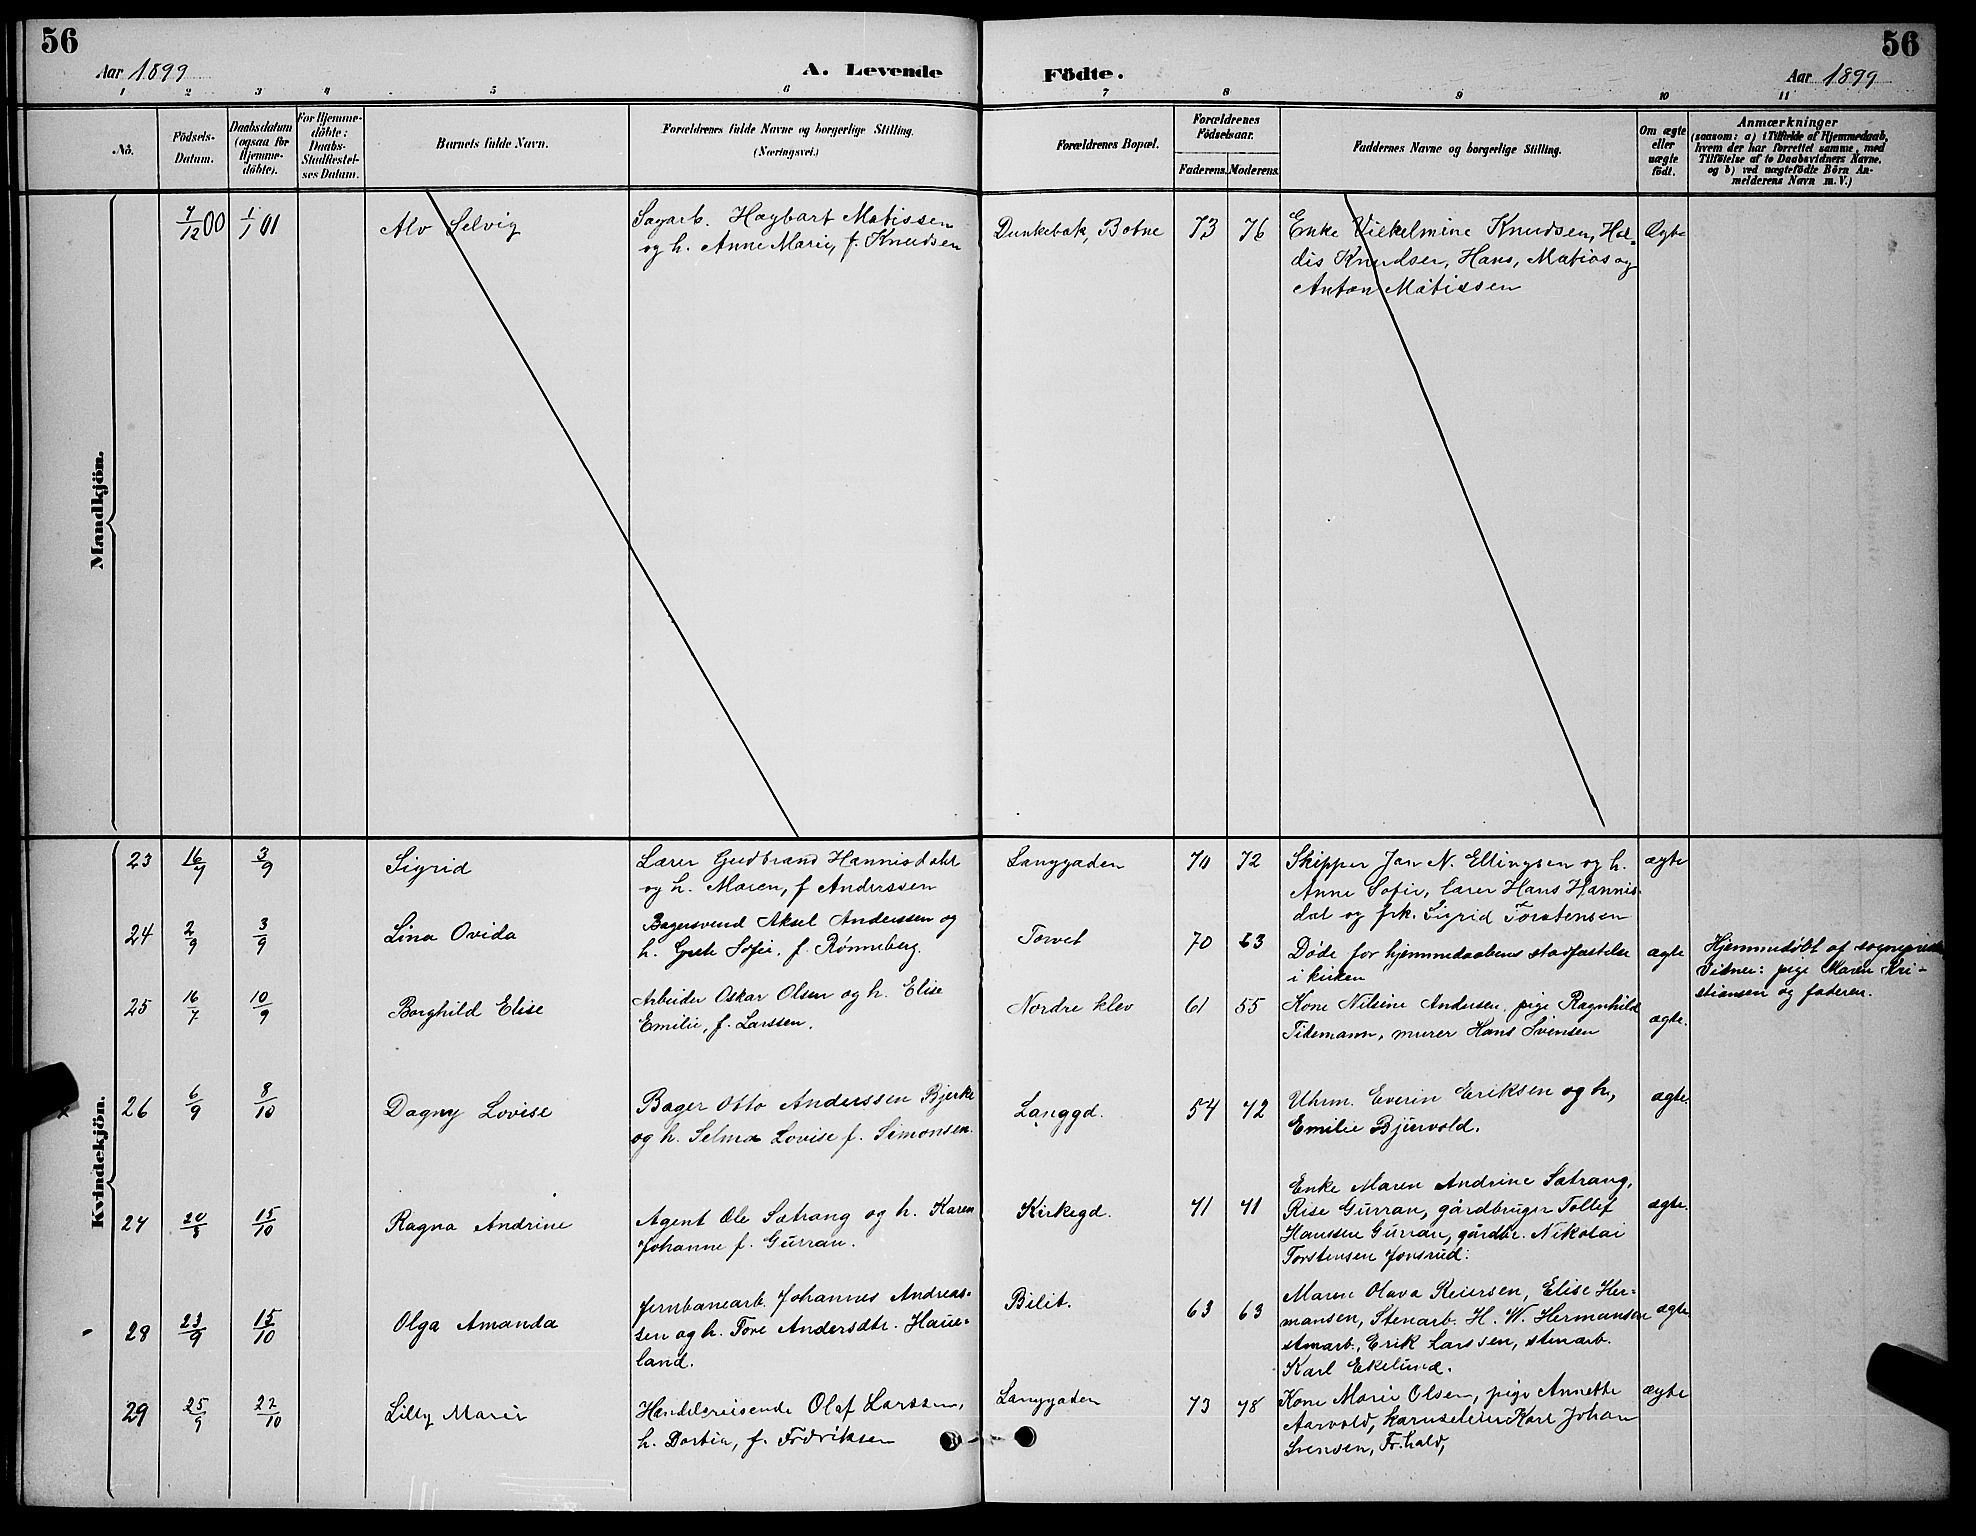 56
56
Aar 1899
A. Levende Födte.
Aar 1899
1 2 3 4 5 6 7 8 9 10 11
No.
Födsels-
Datum.
Daabsdatum
(ogsaa for
Hjemme-
döbte).
For Hjemme-
döbte:
Daabs-
Stadfæstel-
ses Datum.
Barnets fulde Navn.
Forældrenes fulde Navne og borgerlige Stilling.
(Næringsvei.)
Forældrenes Bopæl.
Forældrenes
Födselsaar.
Faderens. Moderens.
Faddernes Navne og borgerlige Stilling.
Om ægte
eller
uægte
födt.
Anmærkninger
(saasom: a) i Tilfælde af Hjemmedaab,
hvem der har forrettet samme, med
Tilföielse af to Daabsvidners Navne,
og b) ved uægtefödte Börn An-
melderens Navn m.V.)
Mandkjön.
7/12 00 1/1 01 Alv Selvig
Sagarb. Hagbart Matissen
og h. Anne Marie, f. Knudsen
Dunkebak, Botne 73 76
Enke Vilhelmine Knudsen, Hal-
dis Knudsen, Hans, Matias og
Anton Matissen
Ægte
Kvindekjön.
23 16/7 3/9 Sigrid
Lærer Gudbrand Hannisdahl
og h. Maren, f Anderssen
Langgaden 70 72
Skipper Jan N. Ellingsen og h.
Anne Sofie, lærer Hans Hannis-
dal og frk. Sigrid Torstensen
ægte
24 2/9 3/9 Lina Ovida
Bagersvend Aksel Anderssen og
h. Grete Sofie, f. Rønneberg.
Torvet 70 63
Døde før hjemmedaabens stadfæstelse
i kirken
ægte
Hjemmedøbt af sognepræst
Vidner: pige Maren Kri-
stiansen og faderen.
25 16/7 10/9 Borghild Elise
Arbeider Oskar Olsen og h. Elise
Emilie, f. Larssen.
Nordre klev 61 55
Kone Nilsine Andersen, pige Ragnhild
Tidemann, murer Hans Svensen
ægte.
x 26 6/9 8/10 Dagny Lovise
Bager Otto Anderssen Bjerke
og h. Selma Lovise f. Simonsen.
Langgd. 54 72
Uhrm. Everin Eriksen og h,
Emilie Bjervold.
ægte.
27 20/8 15/10 Ragna Andrine
Agent Ole Sætrang og h. Karen
Johanne f. Gurran.
Kirkegd. 71 71
Enke Maren Andrine Sætrang,
Rise Gurran, gårdbruger Tollef
Hanssen Gurran, gårdbr. Nikolai
Torstensen Jonsrud.
ægte.
28 23/9 15/10 Olga Amanda
Jernbanearb. Johannes Andreas-
sen og h. Tore Andersdtr. Haue-
land.
Bilit. 63 63
Maren Olava Reiersen, Elise Her-
mansen, Stenarb. H. W. Hermansen
stenarb., Erik Larssen, stenarb.
Karl Ekelund.
ægte
29 25/9 22/10 Lilly Marie
Handelsreisende Olaf Larssen,
h. Dortea, f. Fredriksen
Langgaden 73 78
Kone Marie Olsen, pige Annette
Aarvold, Karl Johan
Svensen, Fr.hald,
ægte